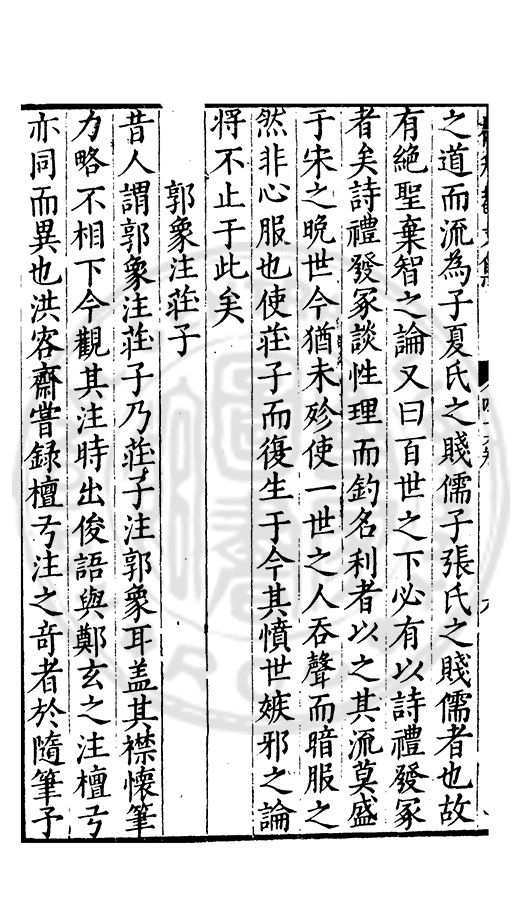 之道而流為子夏氏之賤儒子張氏之賤儒者也故
有絕聖棄智之論又曰百世之下必有以詩禮發冢
者矣詩禮發冢談性理而釣名利者以之其流莫盛
于宋之晚世今猶未殄使一世之人吞聲而暗服之
然非心服也使莊子而復生于今其憤世嫉邪之論
將不止于此矣
郭象注莊子
昔人謂郭象注莊子乃莊子注郭象耳盖其襟懷筆
力略不相下今觀其注時出俊語與鄭玄之注檀弓
亦同而異也洪容齋嘗錄檀弓注之奇者於隨筆予